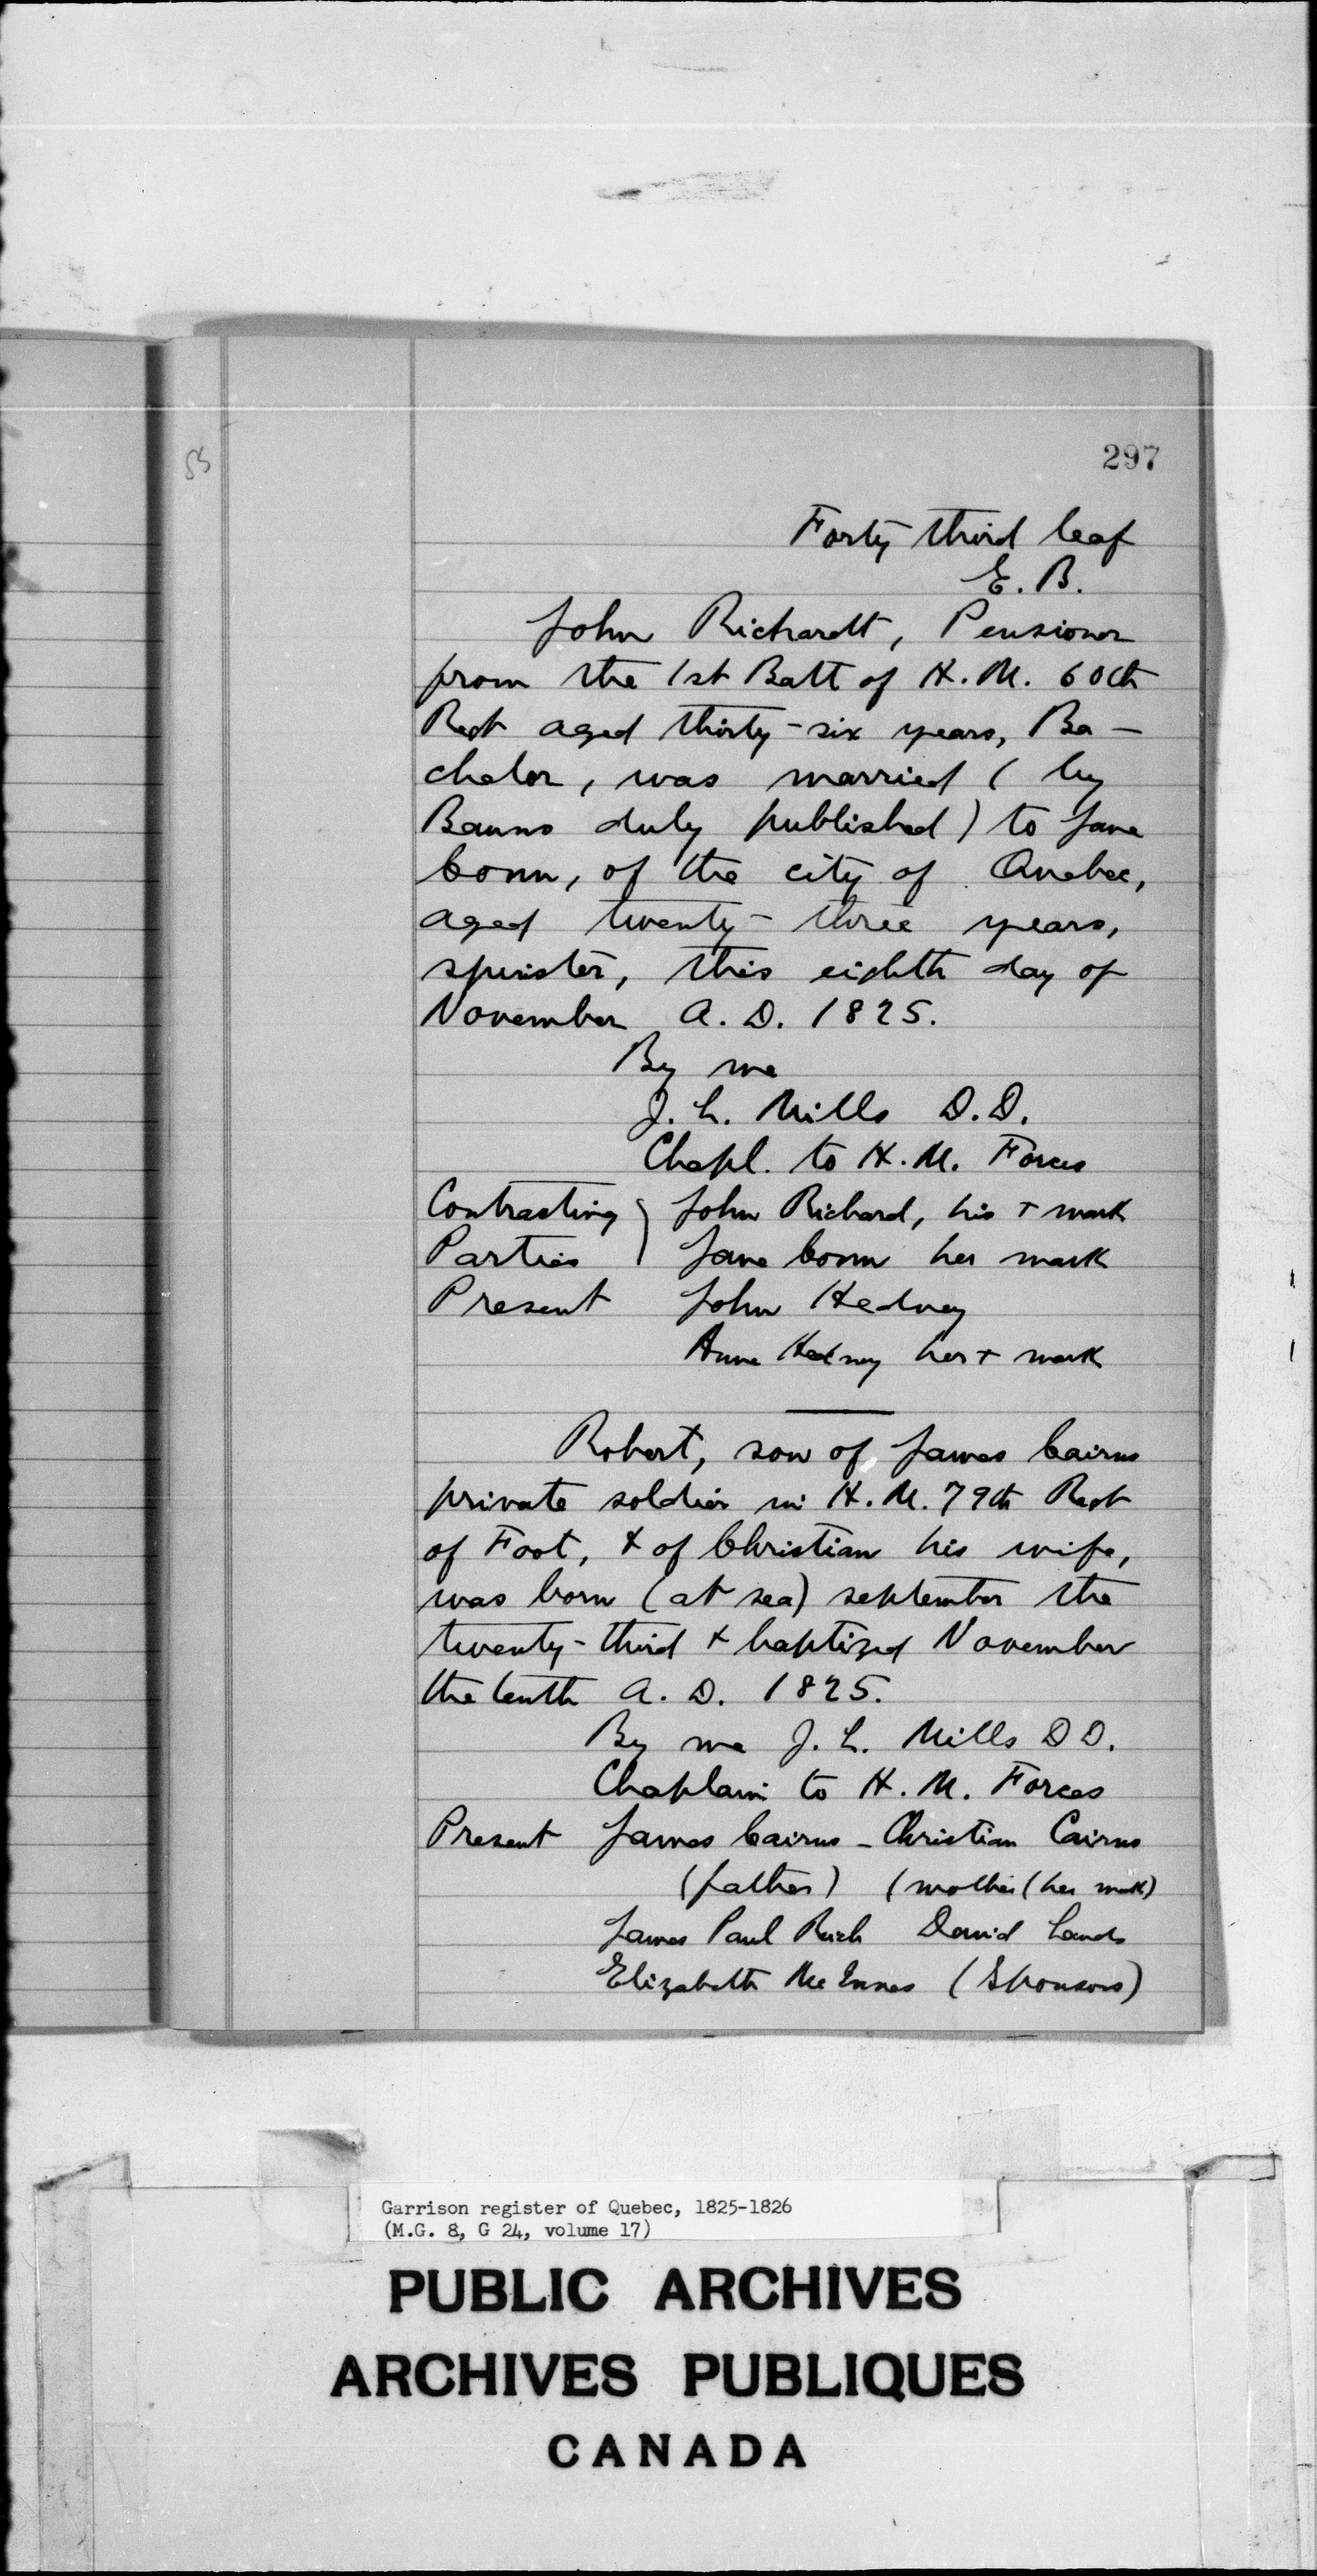 55
297
Forty third leaf
E. B.
John Richardt, Pensioner
from the 1st Batt of H. M. 60th
Regt aged thirty-six years, Ba-
chelor, was married (by
Banns duly published) to Jane
Conn, of the city of Quebec,
aged twenty-three years,
spinster, this eighth day of
November A. D. 1825.
By me
J. L. Mills D.D.
Chapl. to H. M. Forces
Contracting } John Richard, his + mark
Parties } Jane Conn her mark
Present John Hedney
Anne Hedney her + mark
Robert, son of James Cairns
private soldier in H. M. 79th Regt
of Foot, & of Christian his wife,
was born (at sea) september the
twenty-third & baptized November
the tenth A. D. 1825.
By me J. L. Mills D D.
Chaplain to H. M. Forces
Present James Cairns - Christian Cairns
(father) (mother (her mark)
James Paul David
Elizabeth McInnes (Sponsors)
Garrison register of Quebec, 1825-1826
(M.G. 8, G 24, volume 17)
PUBLIC ARCHIVES
ARCHIVES PUBLIQUES
CANADA